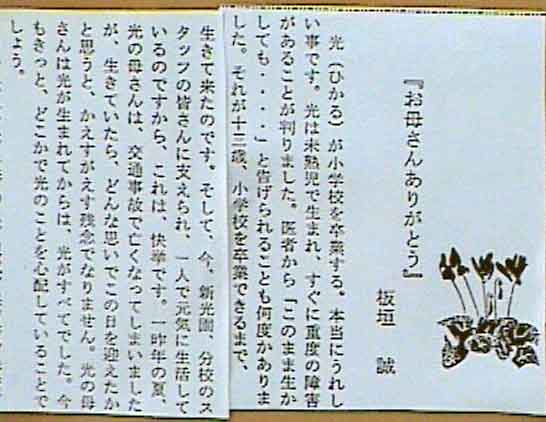 『お母さんありがとう』
板垣 誠
光（ひかる）が小学校を卒業する。本当にうれし
い事です。光は未熟児で生まれ、すぐに重度の障害
があることが判りました。医者から「このまま生か
しても・・・・」と告げられることも何度かありま
した。それが十三歳、小学校を卒業できるまで、
生きて来たのです。そして、今、新光園、分校のス
タッフの皆さんに支えられ、一人で元気に生活して
いるのですから、これは、快挙です。一昨年の夏、
光の母さんは、交通事故で亡くなってしまいました
が、生きていたら、どんな思いでこの日を迎えたか
と思うと、かえすがえす残念でなりません。光の母
さんは光が生まれてからは、光がすべてでした。今
もきっと、どこかで光のことを心配していることで
しょう。